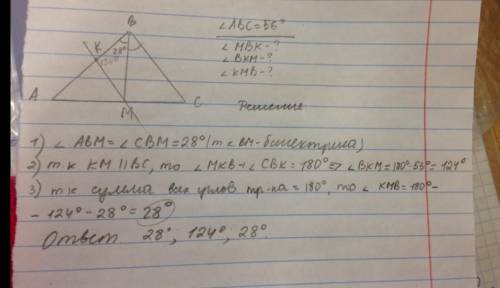 B
∠ABC=56°
K
28°
∠MBK-?
124°
∠BKM-?
∠KMB-?
A
C
M
Решение
1) ∠ABM=∠CBM=28° (т.к BM-биссектриса)
2) т.к KM||BC, то ∠MKB+∠CBK=180° => ∠BKM=180°-56°=124°
3) т.к сумма всех углов тр-ка=180°, то ∠KMB=180°-
-124°-28°=28°
Ответ 28°, 124°, 28°.